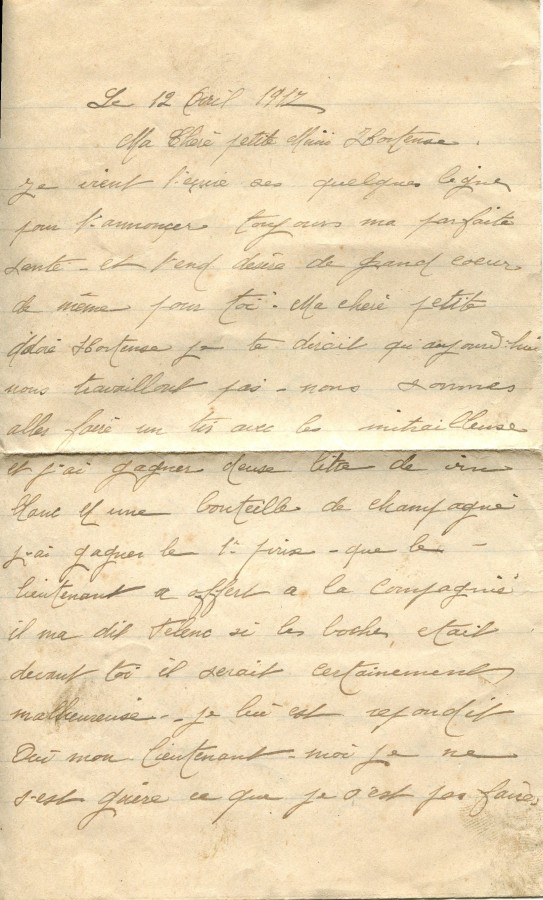 Le 12 Avril 1917
Ma Cheré petite Mimi Hortense.
Je vient t'ecrire ses quelques ligne
pour t'annonçer toujours ma parfaite
santé - et t'end desire de grand coeur
de même pour toi - Ma cheré petite
Hortense je te dirait qu'aujourd'hui
nous travaillont pas - nous sommes
aller faire un tir avec les mitrailleuse
et j'ai gagner deuse litre de vin
blanc et une bouteille de champagne
j-ai gagner le 1er prix - que le -
lieutenant a offert a la compagnié
il ma dit Felenc si les boches etait
devant toi il serait certainement
malheureuse - - je lui est repondit
Oui mon lieutenant - moi je ne
s-est guère ce que je n'est pas faire